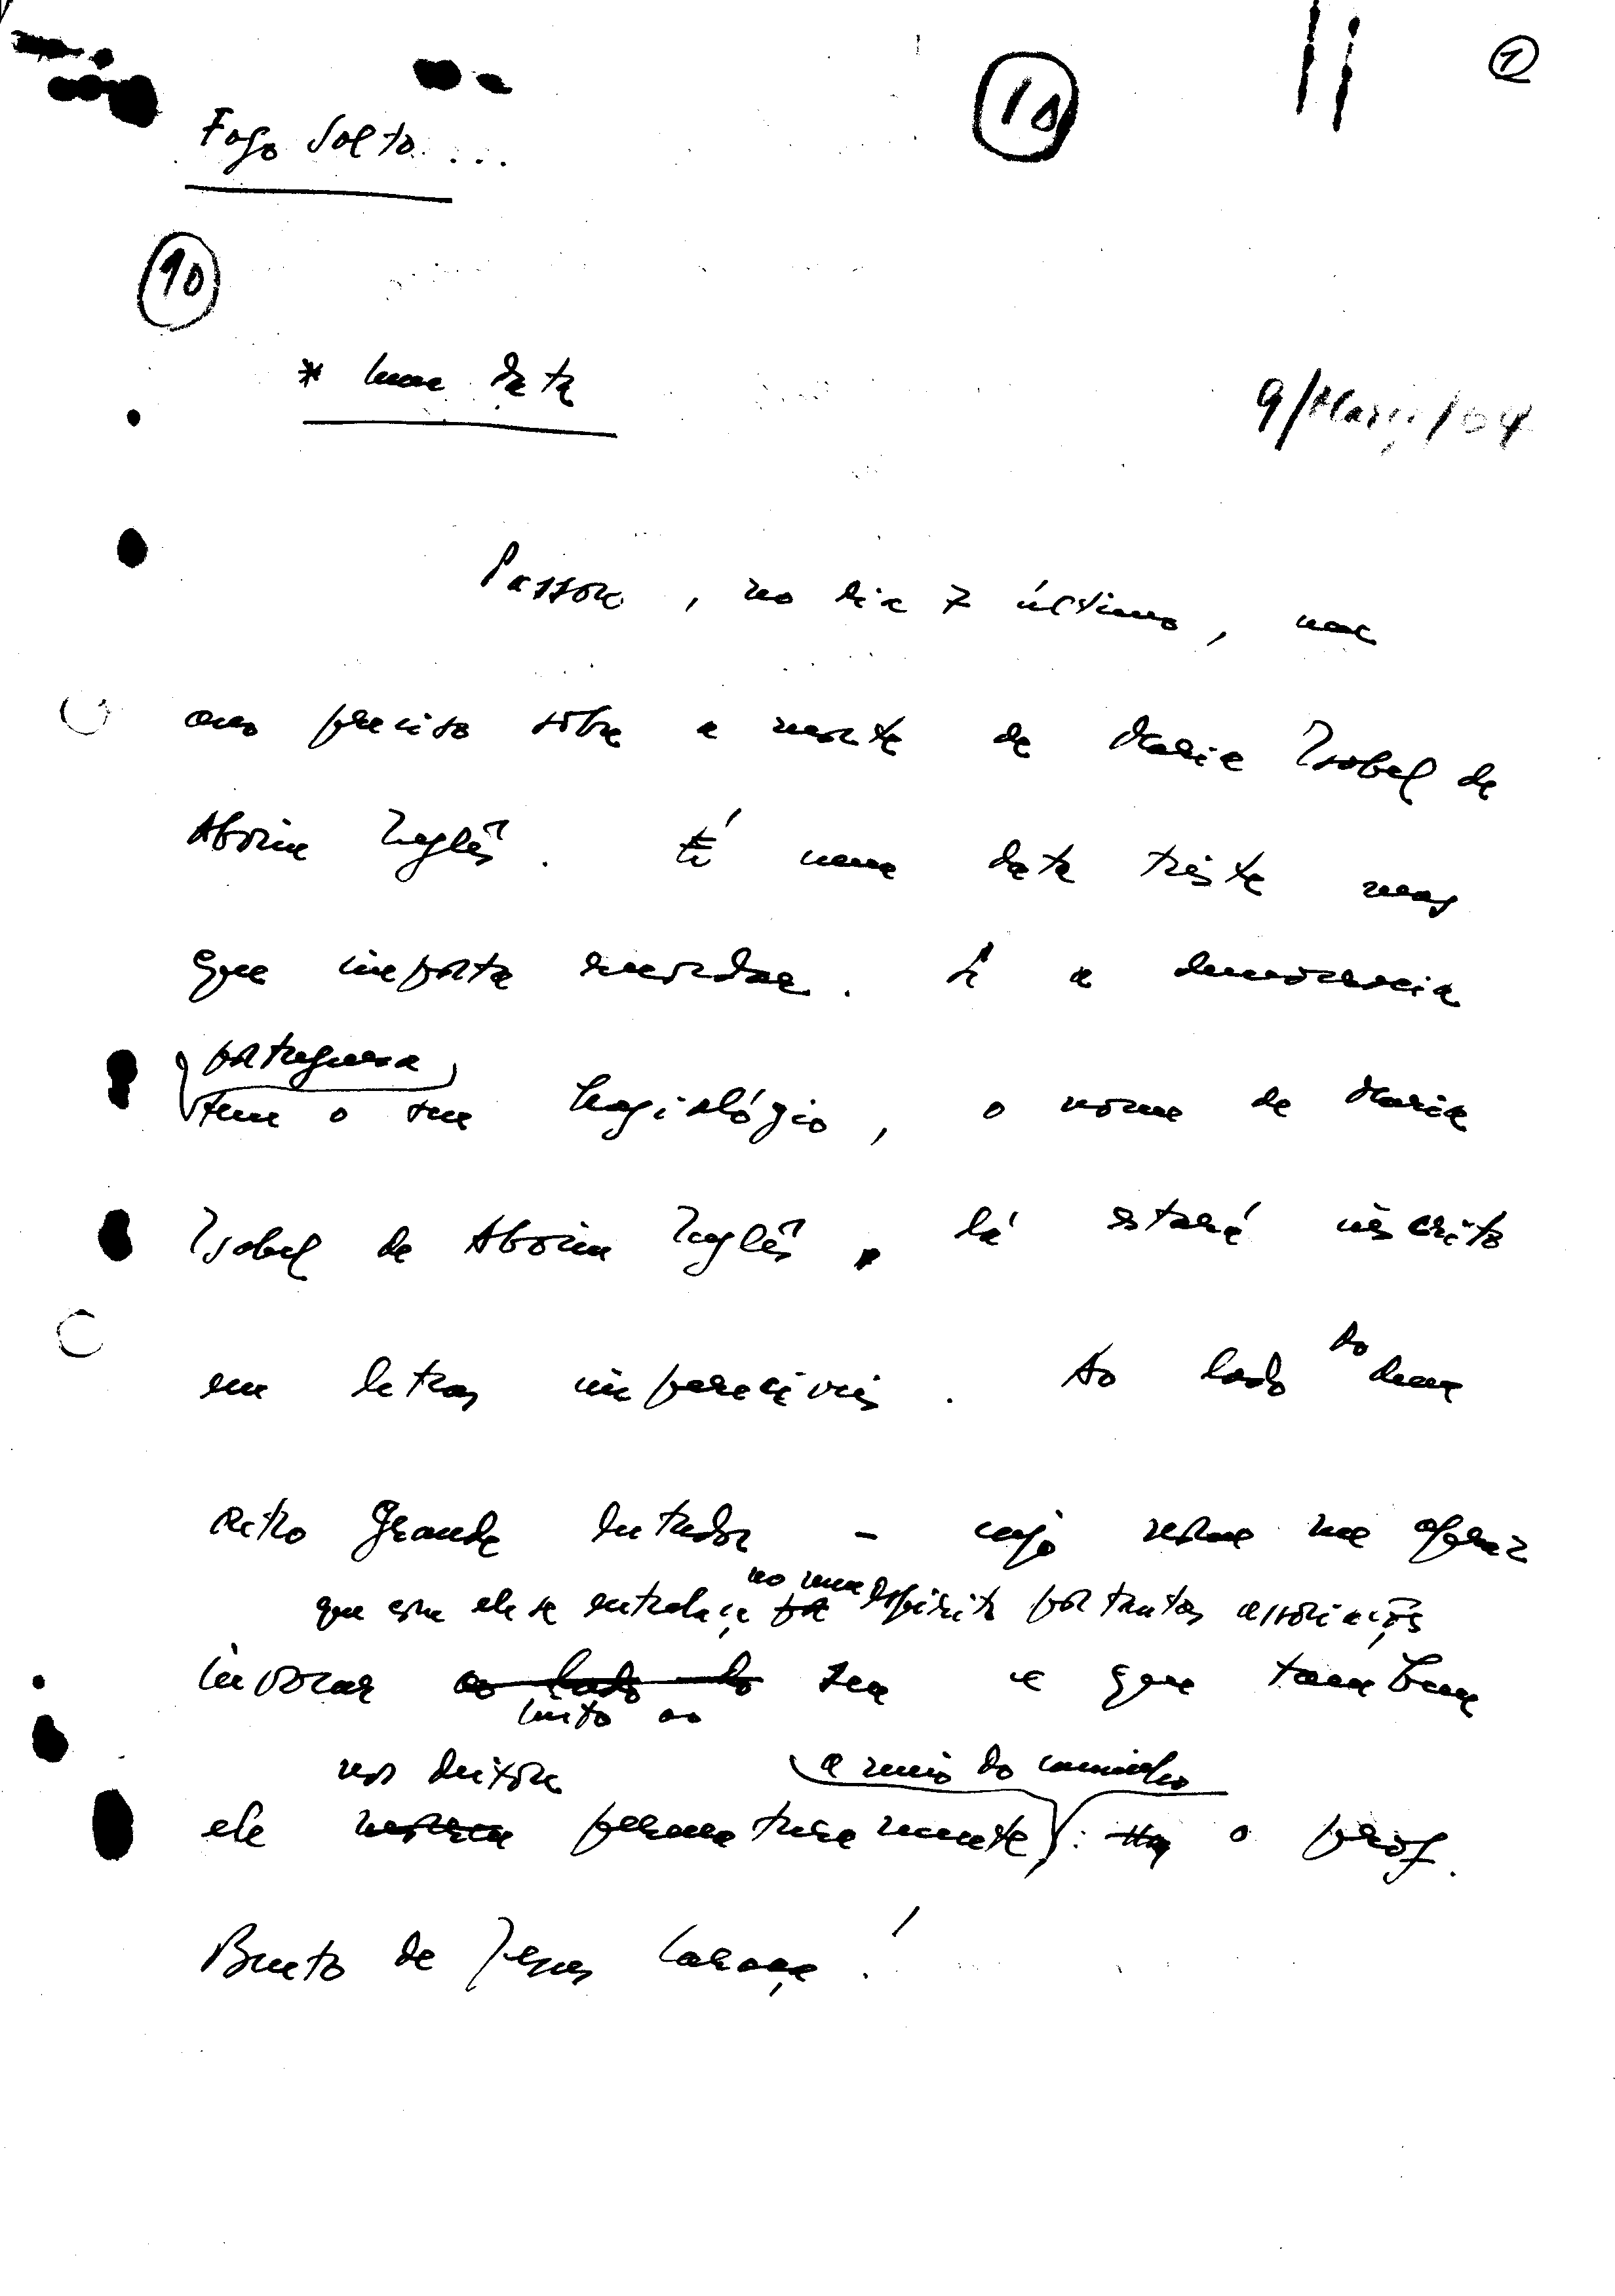 ①
10
Fogo Solto...
10
* Uma data
9/Março/64
Passou, no dia 7 último, um
ano preciso sôbre a morte de Maria Isabel de
Aboim Inglês. É uma data triste mas
que importa recordar. Se a democracia
portuguesa
tem o seu hagiológio, o nome de Maria
Isabel de Aboim Inglês, lá estará inscrito
em letras imperecíveis. Ao lado do dum
outro grande lutador – cujo nome me apraz
que com ele se entrelaça no meu espírito por tantas associações
invocar ao lado do seu e que também
junto ao
nos deixou a meio do caminho
ele morreu prematuramente: o prof.
Bento de Jesus Caraça!